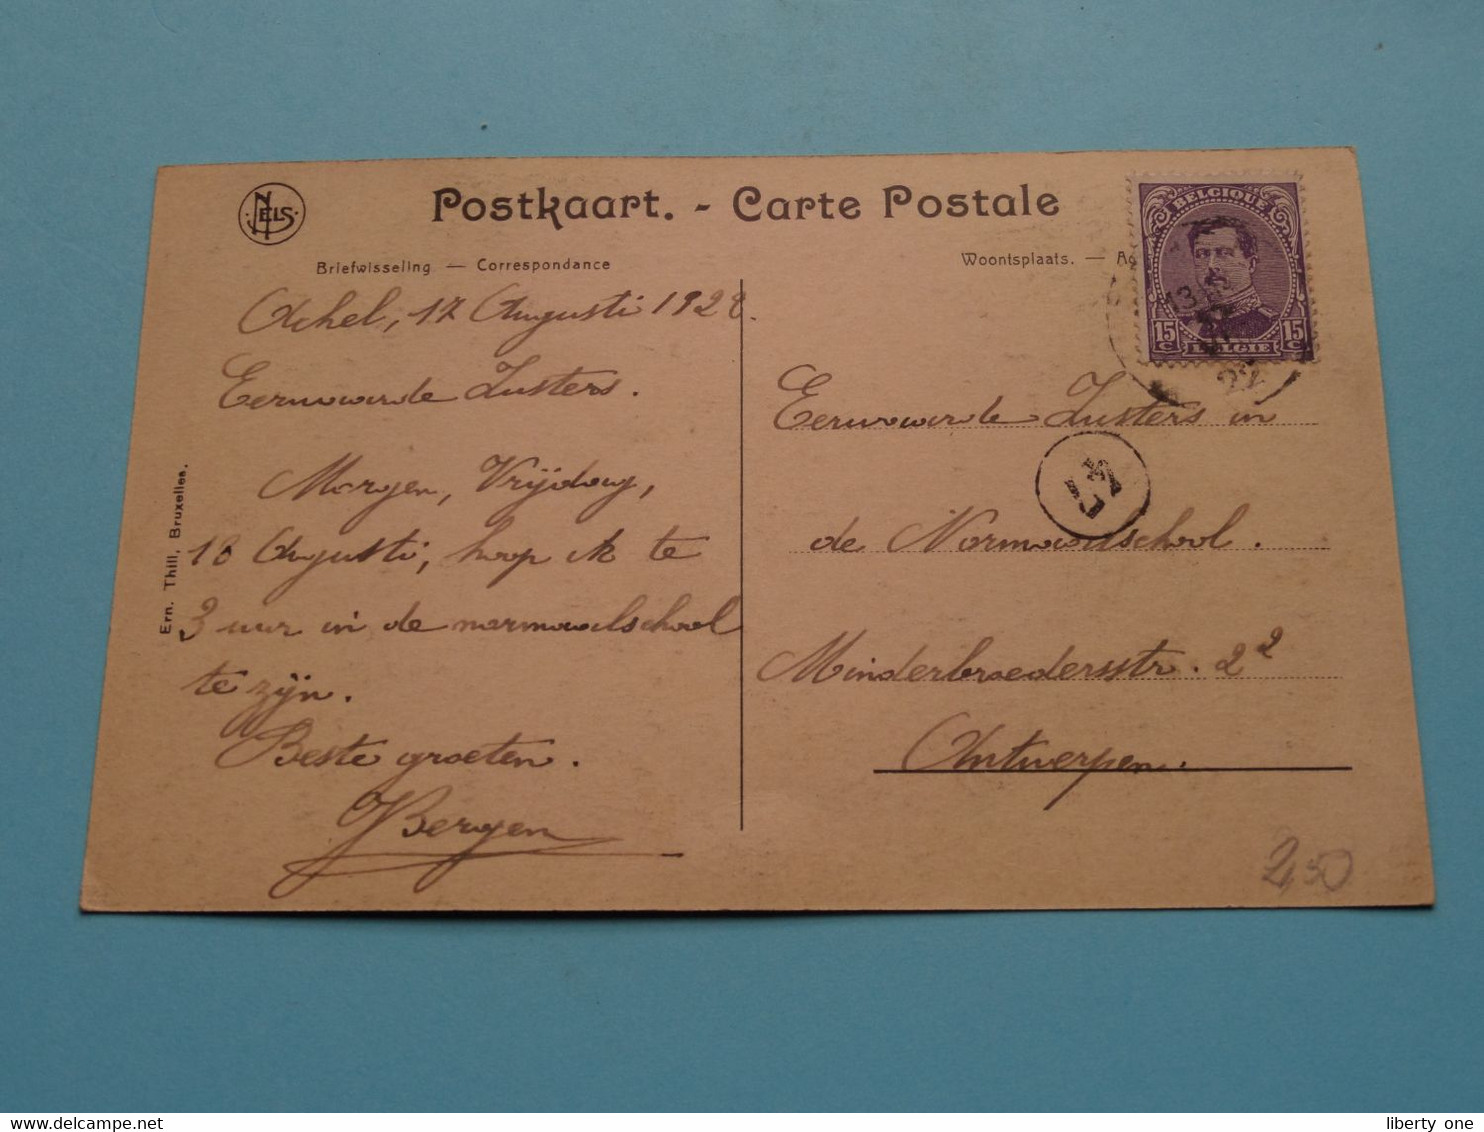 NELS
Postkaart. - Carte Postale
Briefwisseling — Correspondance
Woontsplaats. —
BELGIQUE
15 C
15 C
BELGIË
13
22
Achel, 17 Augusti 1922.
Eerwaarde Zusters.
Morgen, Vrijdag,
18 Augusti, hoop ik te
3 uur in de normaalschool
te zijn.
Beste groeten.
Bergen
Ern. Thill, Bruxelles.
Eerwaarde Zusters in
47
de Normaalschool.
Minderbroedersstr. 22
Antwerpen.
2,50
liberty one